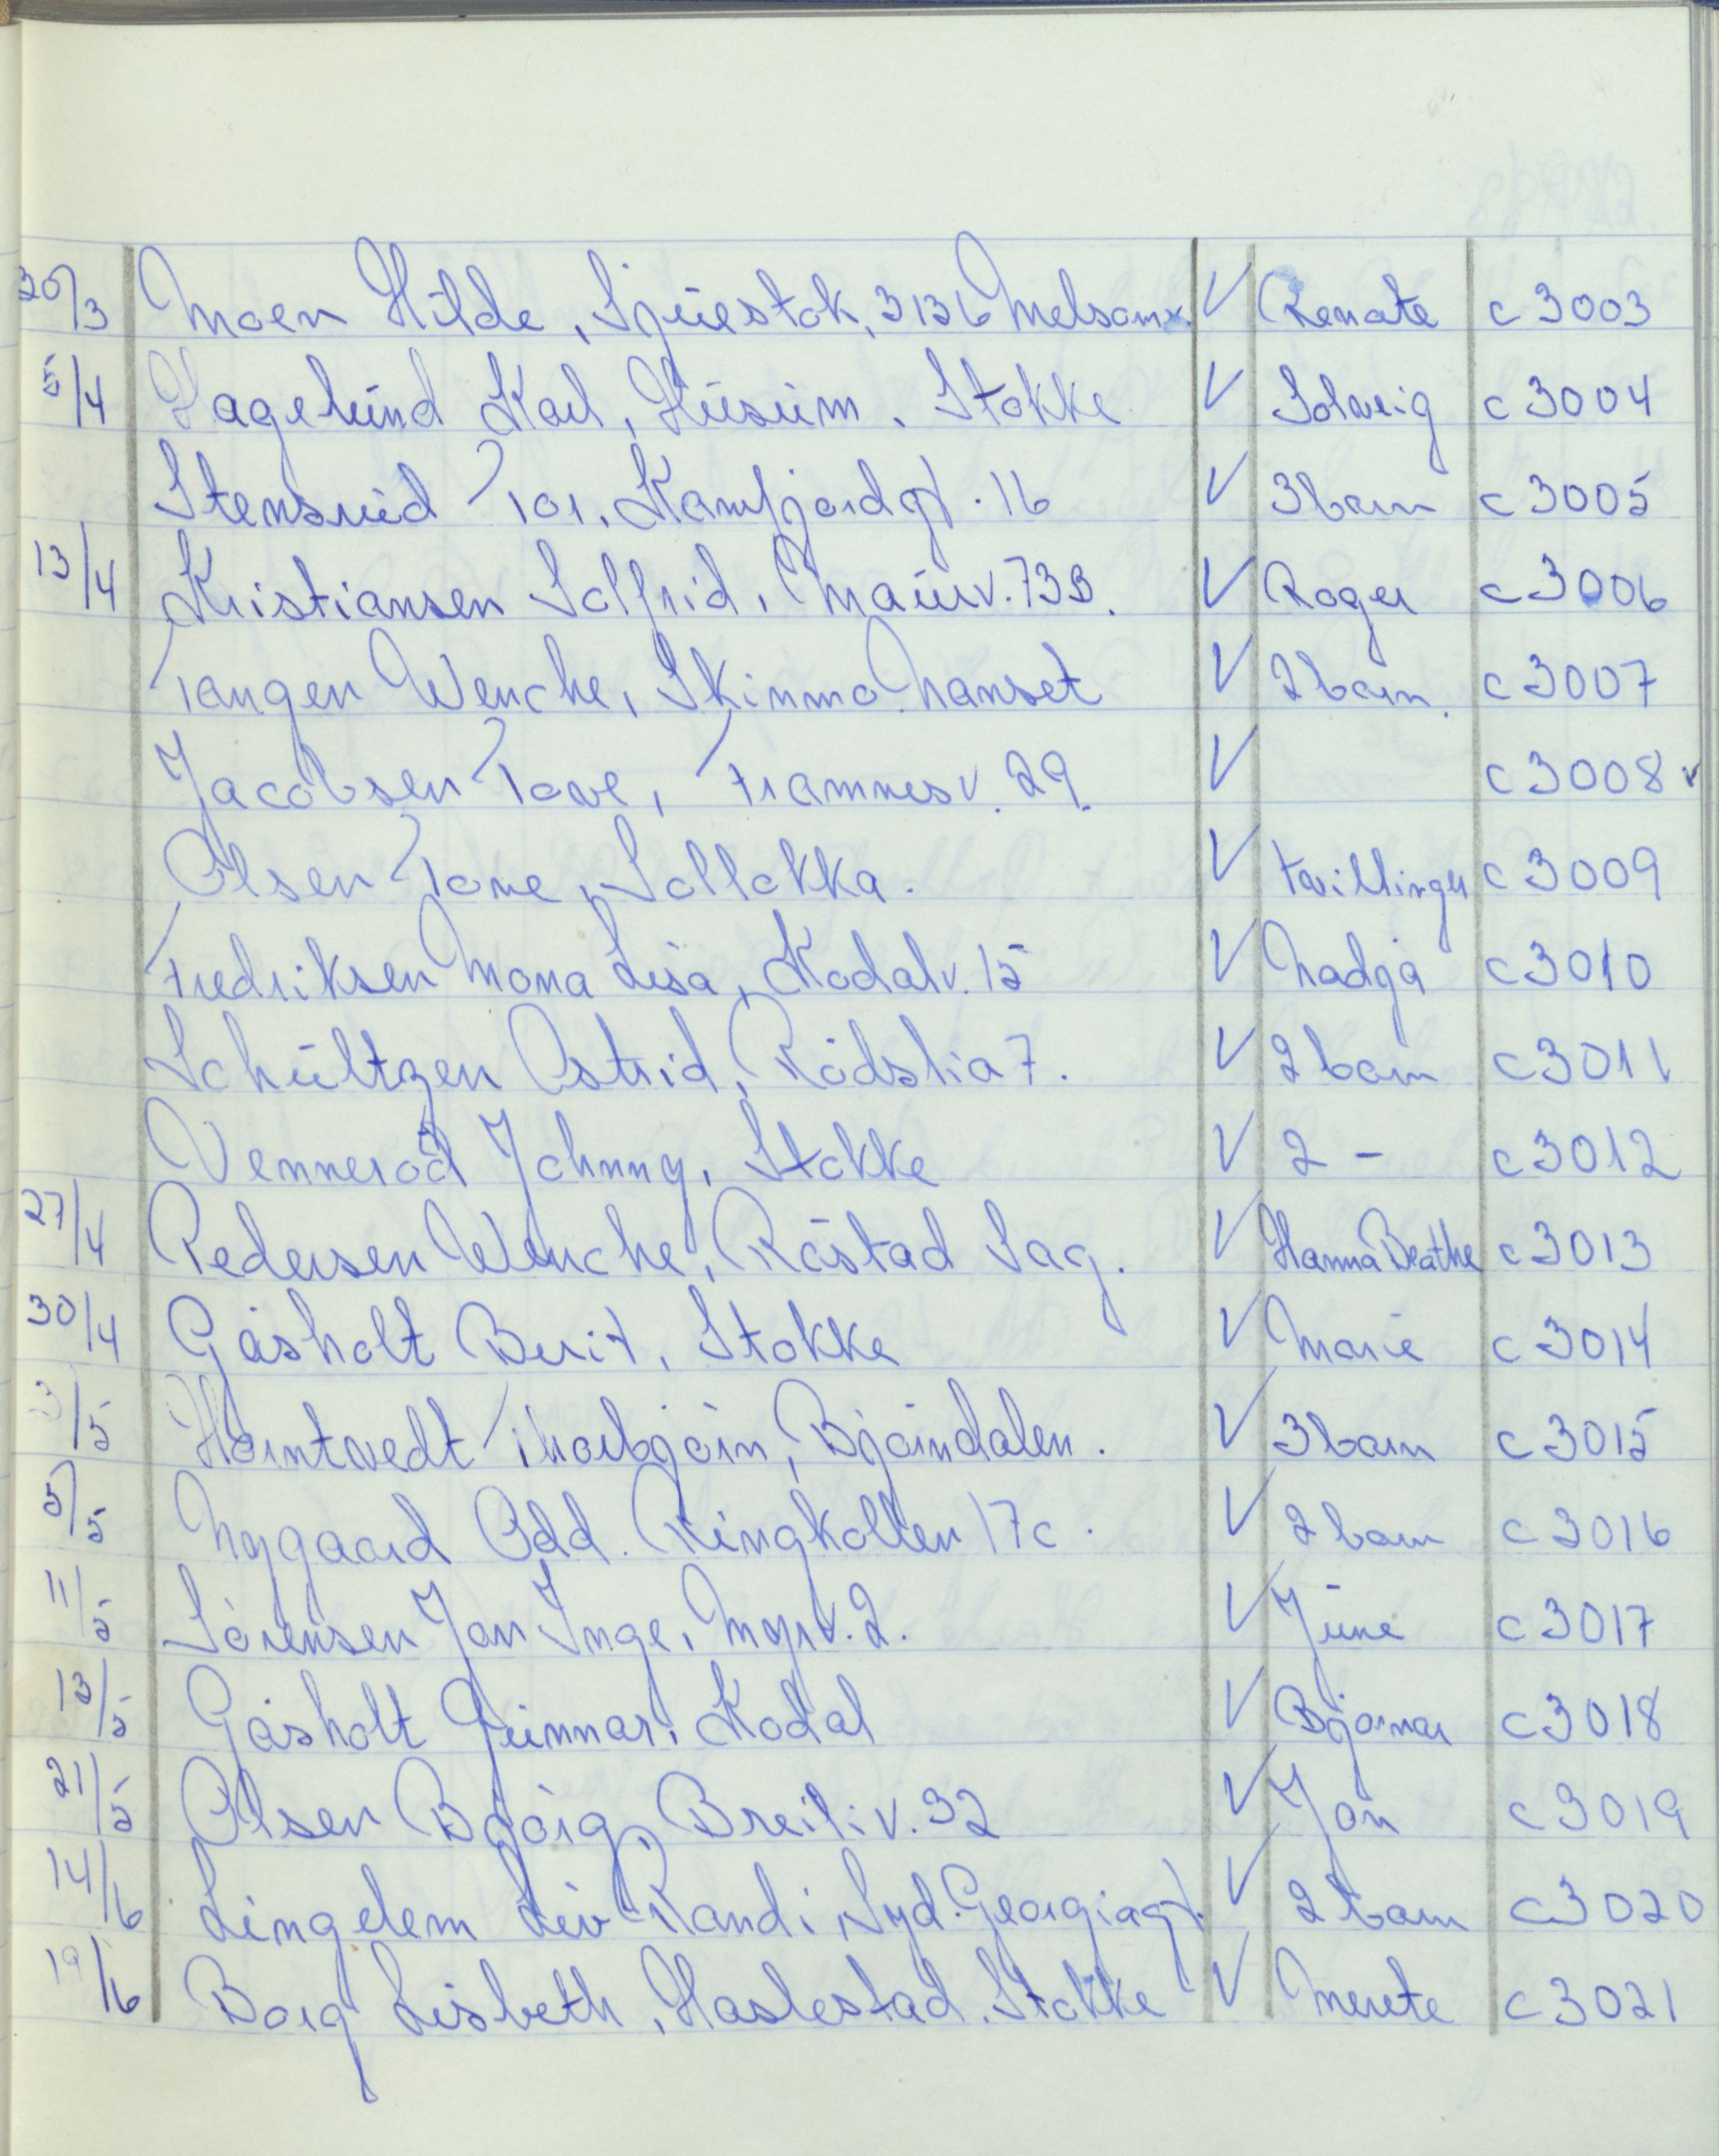 20/3 Moen Hilde, Sjuestok, 3136 Melsomv. V Renate c 3003
5/4 Hagelund Karl, Husum, Stokke V Solveig c 3004
Stensrud Tor, Kamfjordgt. 16 V 3 barn c 3005
13/4 Kristiansen Solfrid, Maurv. 73B. V Roger c 3006
Tangen Wenche, Skinmo. Nanset V 2 barn. c 3007
Jacobsen Tove, Framnesv. 29. V c 3008 v
Olsen Tone, Solløkka. V tvillinger c 3009
Fredriksen Mona Lisa, Kodalv. 15 V Nadja c 3010
Schultzen Astrid, Rødslia 7. V 2 barn c 3011
Vennerød Johnny, Stokke V 2 - c 3012
27/4 Pedersen Wenche, Råstad Sag. V Hanna Beathe c 3013
30/4 Gåsholt Berit, Stokke V Marie c 3014
3/5 Horntvedt Thorbjørn, Bjørndalen. V 3 barn c 3015
5/5 Nygaard Odd. Ringkollen 17c. V 2 barn c 3016
11/5 Sørensen Jan Inge, Myrv. 2. V June c 3017
13/5 Gåsholt Gunnar, Kodal V Bjørnar c 3018
21/5 Olsen Bjørg, Breiliv. 32 V Jan c 3019
14/6 Lingelem Liv Randi, Syd. Georgiagt. V 2 barn c 3020
19/6 Borg Lisbeth, Haslestad. Stokke V Merete c 3021